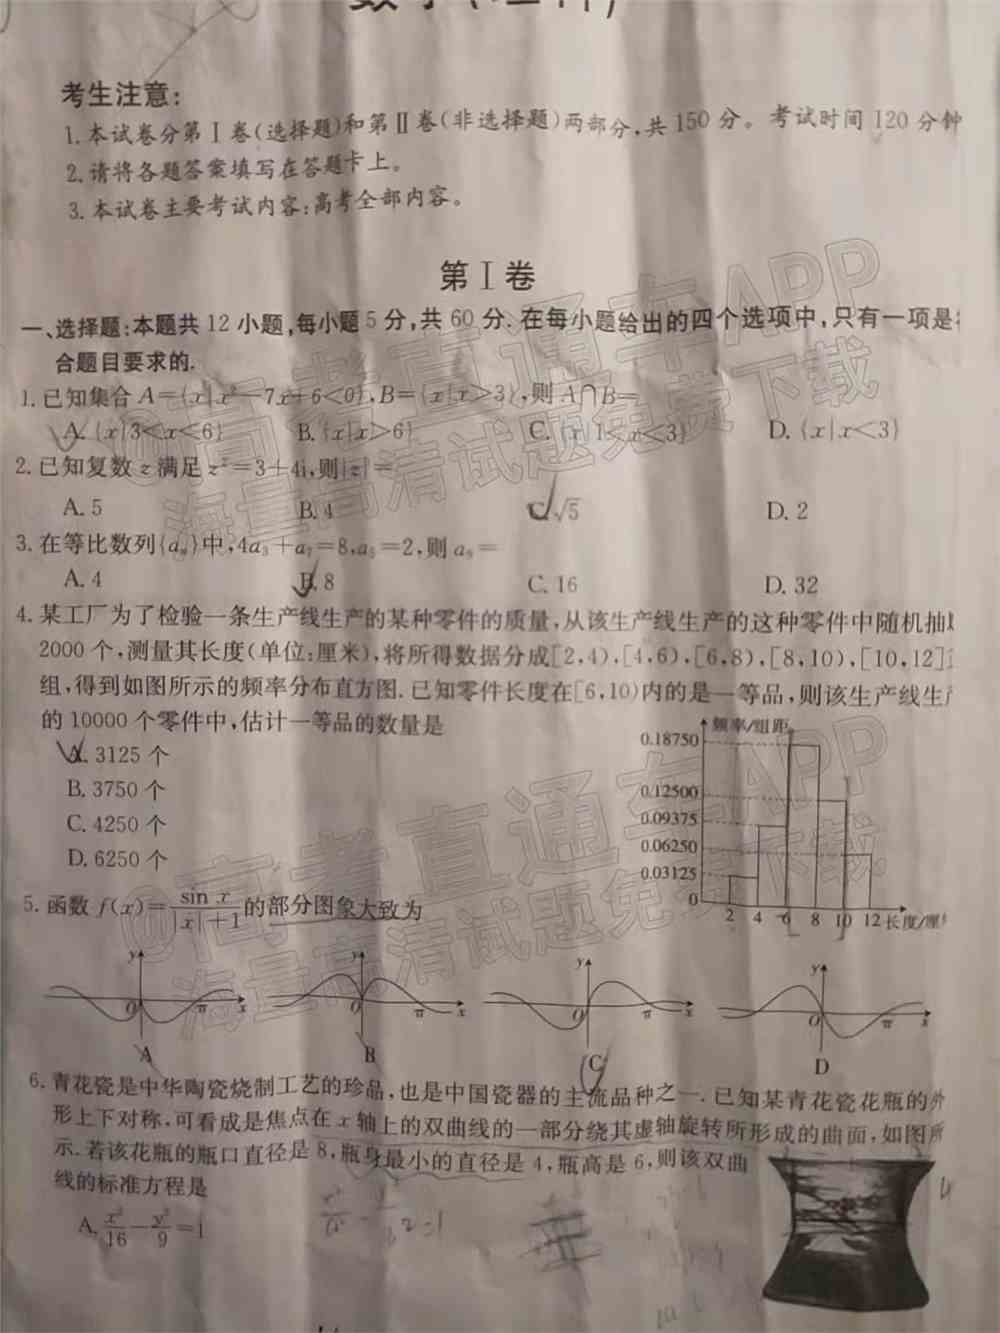 数学(理科)
考生注意:
1.本试卷分第Ⅰ卷(选择题)和第Ⅱ卷(非选择题)两部分,共150分。考试时间120分钟
2.请将各题答案填写在答题卡上。
3.本试卷主要考试内容:高考全部内容。
第Ⅰ卷
一、选择题:本题共12小题,每小题5分,共60分.在每小题给出的四个选项中,只有一项是
合题目要求的.
1.已知集合A={x|x²-7x+6<0},B={x|x>3},则A∩B=
A.{x|3<x<6} B.{x|x>6} C.{x|1<x<3} D.{x|x<3}
2.已知复数z满足z²=3+4i,则|z|=
A.5 B.4 C.√5 D.2
3.在等比数列{aₙ}中,4a₃+a₇=8,a₅=2,则a₉=
A.4 B.8 C.16 D.32
4.某工厂为了检验一条生产线生产的某种零件的质量,从该生产线生产的这种零件中随机抽
2000个,测量其长度(单位:厘米),将所得数据分成[2,4),[4,6),[6,8),[8,10),[10,12]
组,得到如图所示的频率分布直方图.已知零件长度在[6,10)内的是一等品,则该生产线生
的10000个零件中,估计一等品的数量是
A.3125个
B.3750个
C.4250个
D.6250个
频率/组距
0.18750
0.12500
0.09375
0.06250
0.03125
0
2 4 6 8 10 12 长度/厘
5.函数f(x)=sin x/(|x|+1)的部分图象大致为
y O π x
y O π x
y O π x
y O π x
A B C D
6.青花瓷是中华陶瓷烧制工艺的珍品,也是中国瓷器的主流品种之一.已知某青花瓷花瓶的外
形上下对称,可看成是焦点在x轴上的双曲线的一部分绕其虚轴旋转所形成的曲面,如图所
示.若该花瓶的瓶口直径是8,瓶身最小的直径是4,瓶高是6,则该双曲
线的标准方程是
A.x²/16-y²/9=1
@高考直通车APP
海量高清试题免费下载
@高考直通车APP
海量高清试题免费下载